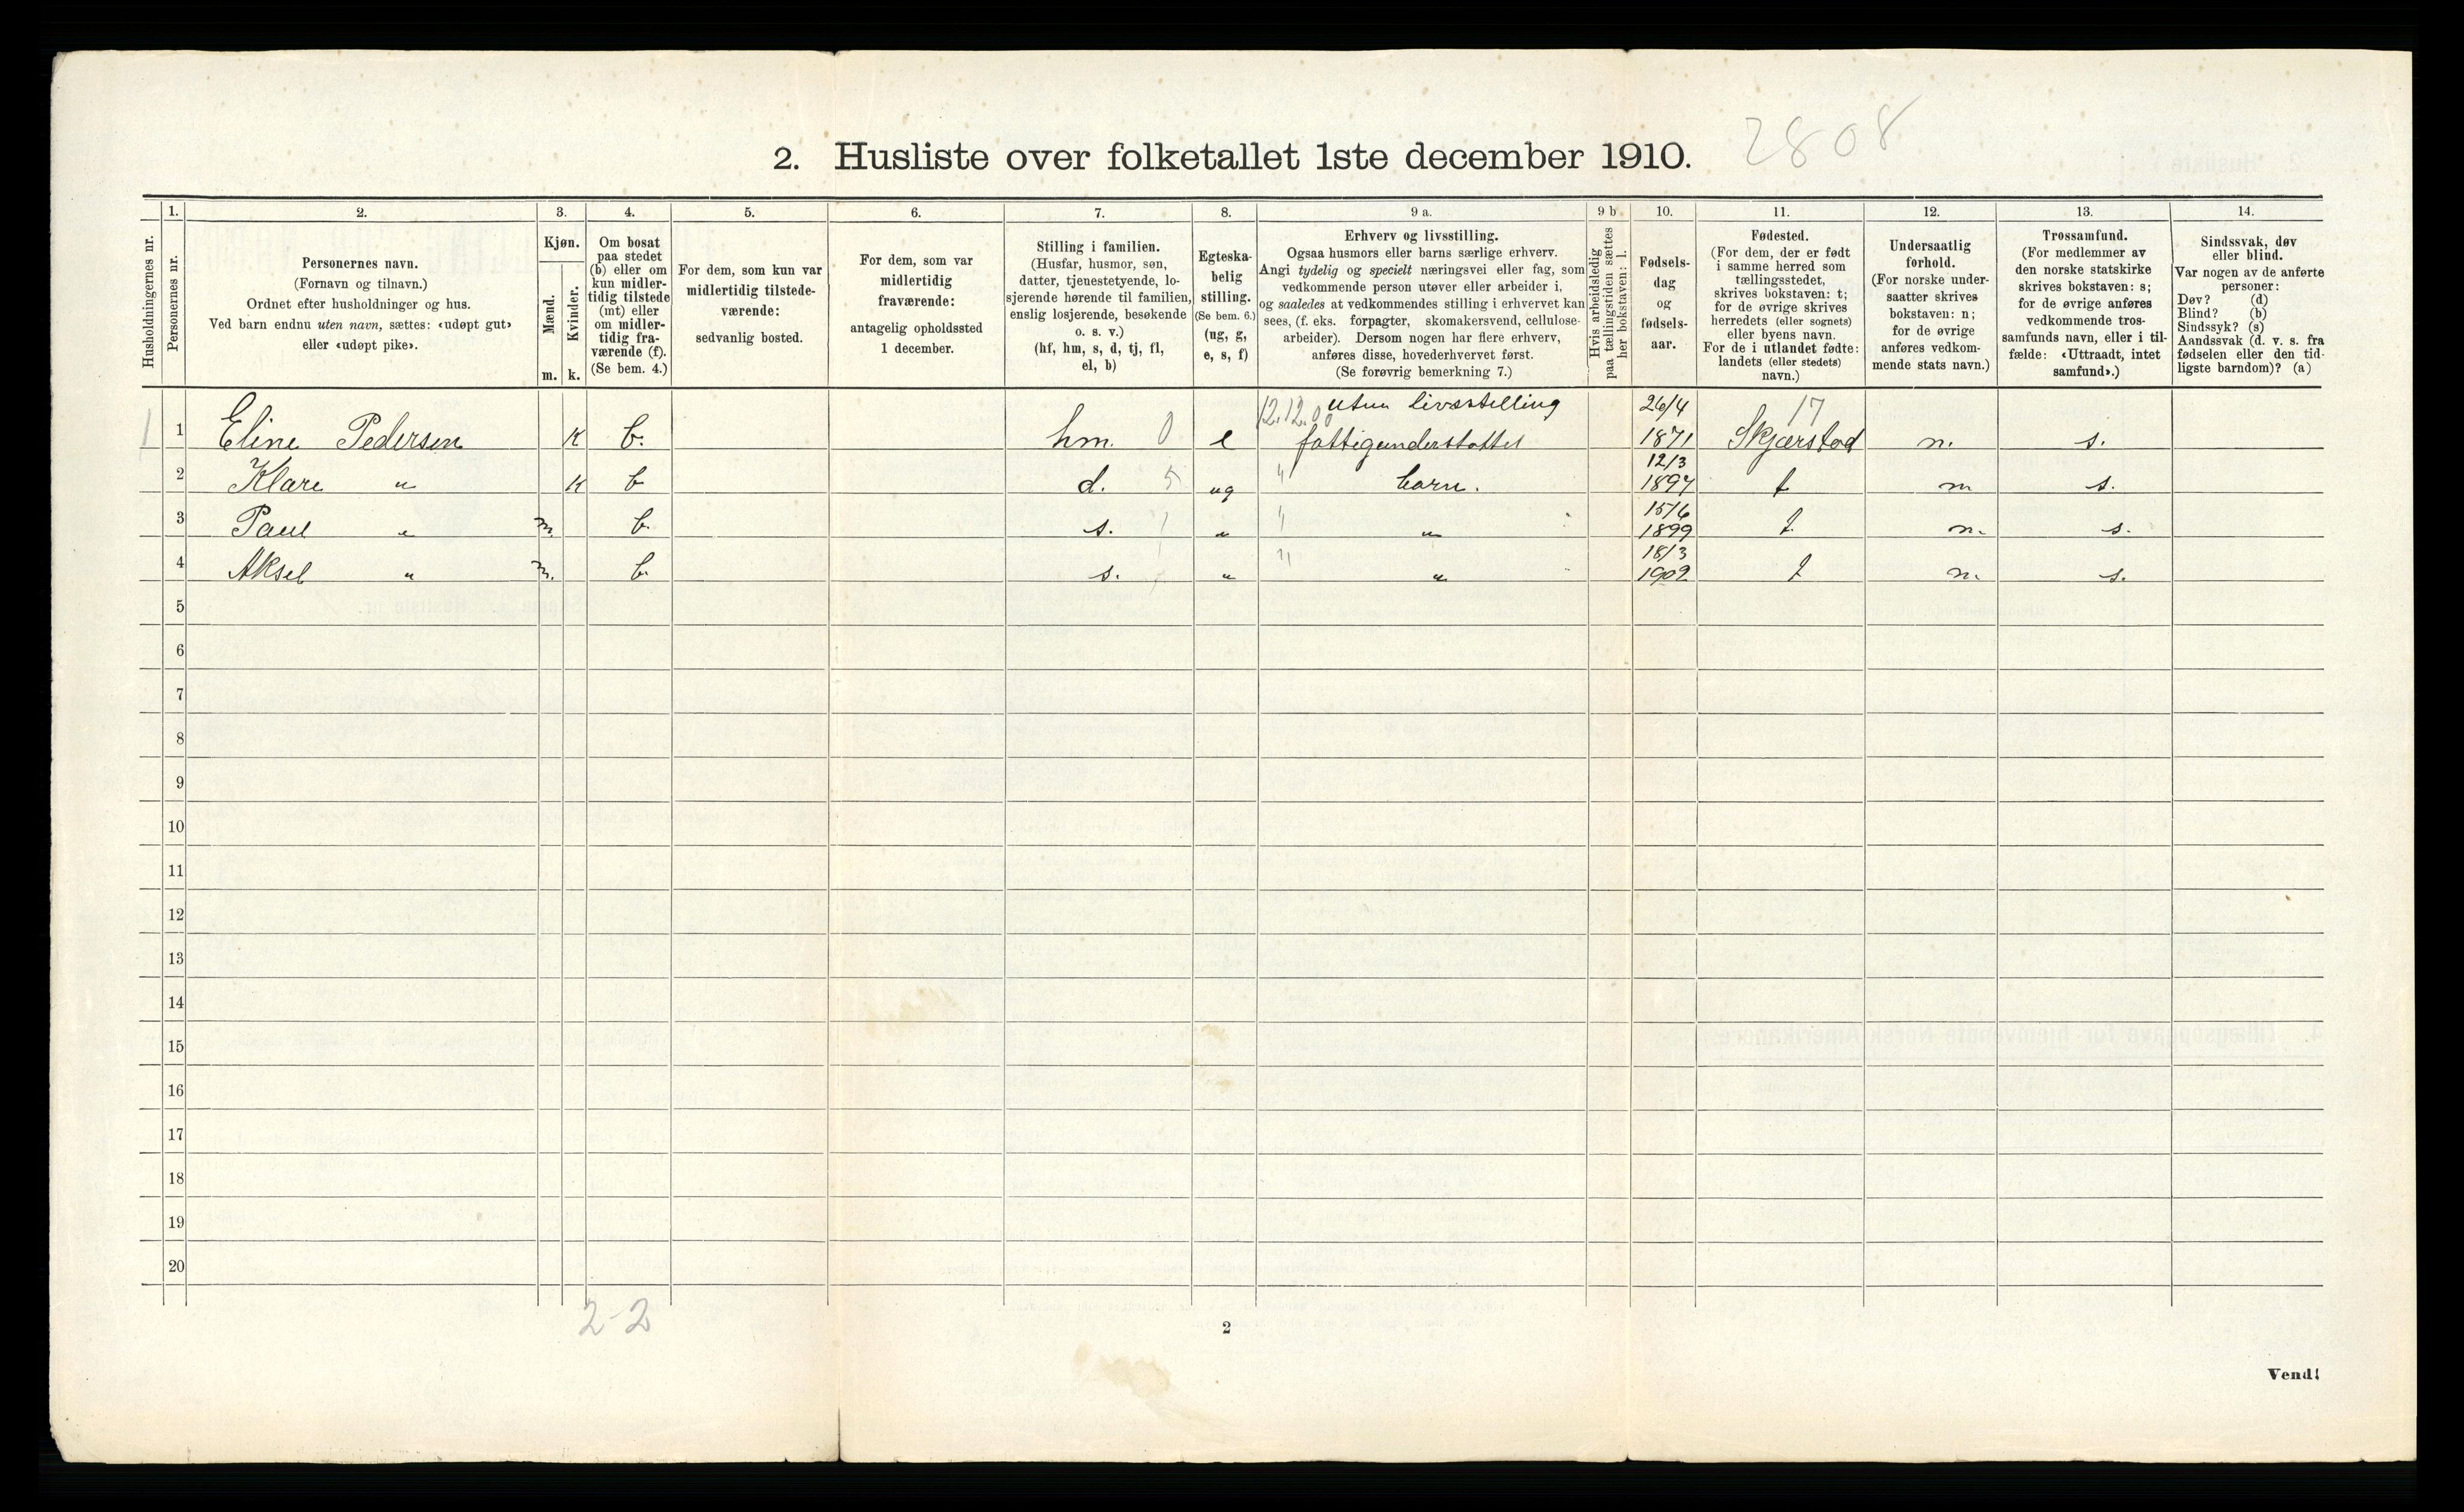 2. Husliste over folketallet 1ste december 1910. 2808
Husholdningernes nr.
1. 2. 3. 4. 5. 6. 7. 8. 9 a. 9 b. 10. 11. 12. 13. 14.
Personernes nr.
Personernes navn.
(Fornavn og tilnavn.)
Ordnet efter husholdninger og hus.
Ved barn endnu uten navn, sættes: «udøpt gut»
eller «udøpt pike».
Kjøn.
Mænd.
Kvinder.
m. k.
Om bosat
paa stedet
(b) eller om
kun midler-
tidig tilstede
(mt) eller
om midler-
tidig fra-
værende (f).
(Se bem. 4.)
For dem, som kun var
midlertidig tilstede-
værende:
sedvanlig bosted.
For dem, som var
midlertidig
fraværende:
antagelig opholdssted
1 december.
Stilling i familien.
(Husfar, husmor, søn,
datter, tjenestetyende, lo-
sjerende hørende til familien,
enslig losjerende, besøkende
o. s. v.)
(hf, hm, s, d, tj, fl,
el, b)
Egteska-
belig
stilling.
(Se bem. 6.)
(ug, g,
e, s, f)
Erhverv og livsstilling.
Ogsaa husmors eller barns særlige erhverv.
Angi tydelig og specielt næringsvei eller fag, som
vedkommende person utøver eller arbeider i,
og saaledes at vedkommendes stilling i erhvervet kan
sees, (f. eks. forpagter, skomakersvend, cellulose-
arbeider). Dersom nogen har flere erhverv,
anføres disse, hovederhvervet først.
(Se forøvrig bemerkning 7.)
Hvis arbeidsledig
paa tællingstiden sættes
her bokstaven: l.
Fødsels-
dag
og
fødsels-
aar.
Fødested.
(For dem, der er født
i samme herred som
tællingsstedet,
skrives bokstaven: t;
for de øvrige skrives
herredets (eller sognets)
eller byens navn.
For de i utlandet fødte:
landets (eller stedets)
navn.)
Undersaatlig
forhold.
(For norske under-
saatter skrives
bokstaven: n;
for de øvrige
anføres vedkom-
mende stats navn.)
Trossamfund.
(For medlemmer av
den norske statskirke
skrives bokstaven: s;
for de øvrige anføres
vedkommende tros-
samfunds navn, eller i til-
fælde: «Uttraadt, intet
samfund».)
Sindssvak, døv
eller blind.
Var nogen av de anførte
personer:
Døv? (d)
Blind? (b)
Sindssyk? (s)
Aandssvak (d. v. s. fra
fødselen eller den tid-
ligste barndom)? (a)
12.12.00 uten livsstilling 26/4 17
1 1 Eline Pedersen K b. hm. 0 e fattigunderstøttet 1871 Skjerstad n. s.
12/3
2 Klare " K b d. 5 ug " barn. 1897 t n s.
15/6
3 Paul " m. b. s. " " " 1899 t n. s.
18/3
4 Aksel " m. b. s. " " " 1902 t n. s.
5
6
7
8
9
10
11
12
13
14
15
16
17
18
19
20
2-2
2
Vend!